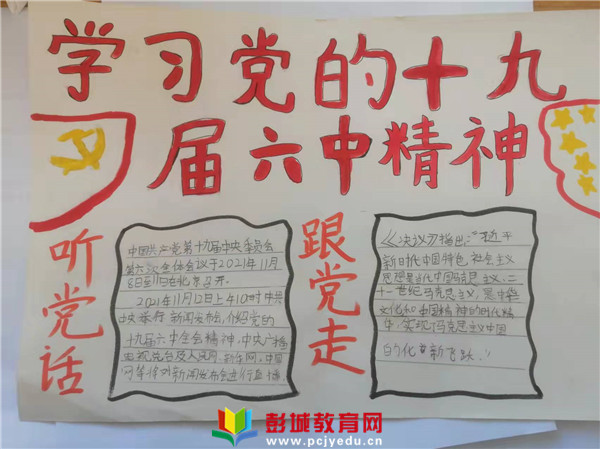 学习党的十九
届六中精神
听党话
中国共产党第十九届中央委员会
第六次全体会议于2021年11月
8日至11日在北京召开。
2021年11月12日上午10时中共
中央举行新闻发布会,介绍党的
十九届六中全会精神,中央广播
电视总台及人民网、新华网、中国
网等将对新闻发布会进行直播。
跟党走
《决议》指出:“
新时代中国特色社会主义
思想是当代中国马克思主义、二
十一世纪马克思主义,是中华
文化和中国精神的时代精
华,实现了马克思主义中国
的化新飞跃。”
彭城教育网
www.pcjyedu.cn